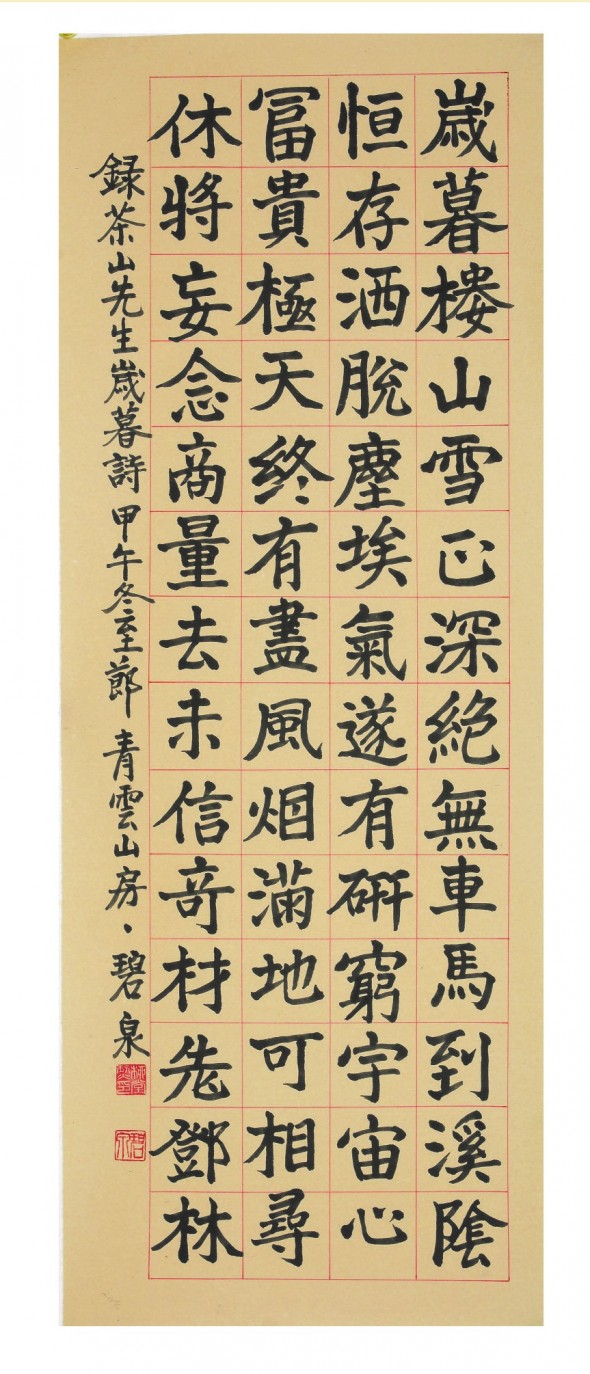 歲暮楼山雪正深絶無車馬到溪陰
恒存洒脫塵埃氣遂有硏窮宇宙心
冨貴極天終有盡風烟滿地可相尋
休將妄念商量去未信竒材老鄧林
録茶山先生歲暮詩 甲午冬至節 青雲山房、碧泉
碧泉